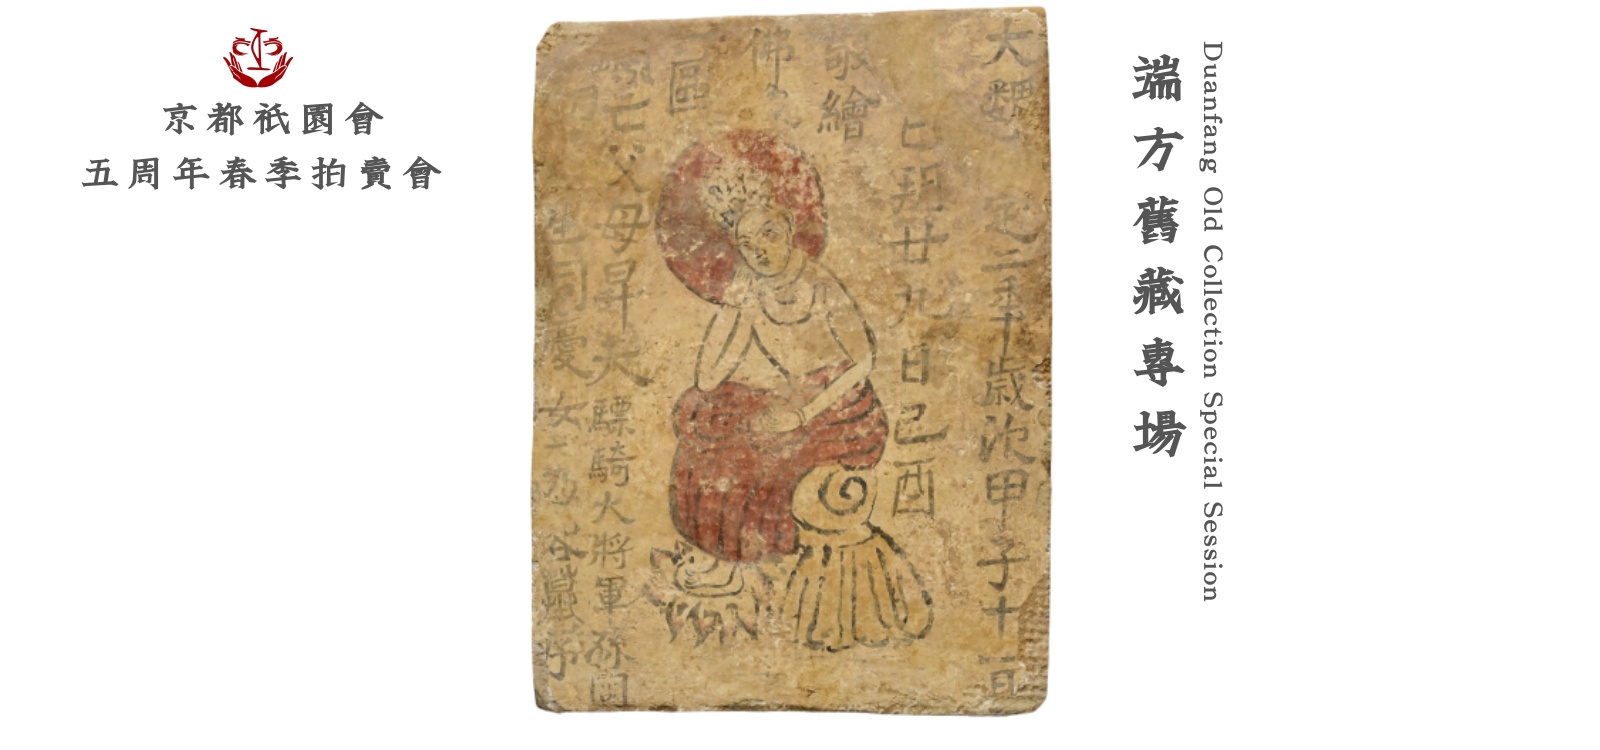 京都祇園會
五周年春季拍賣會
大魏
二年十歲次甲子十一
廿九日己酉
敬繪
佛
區
亡父母昇天驃騎大將軍孫
同慶女
端方舊藏專場
Duanfang Old Collection Special Session